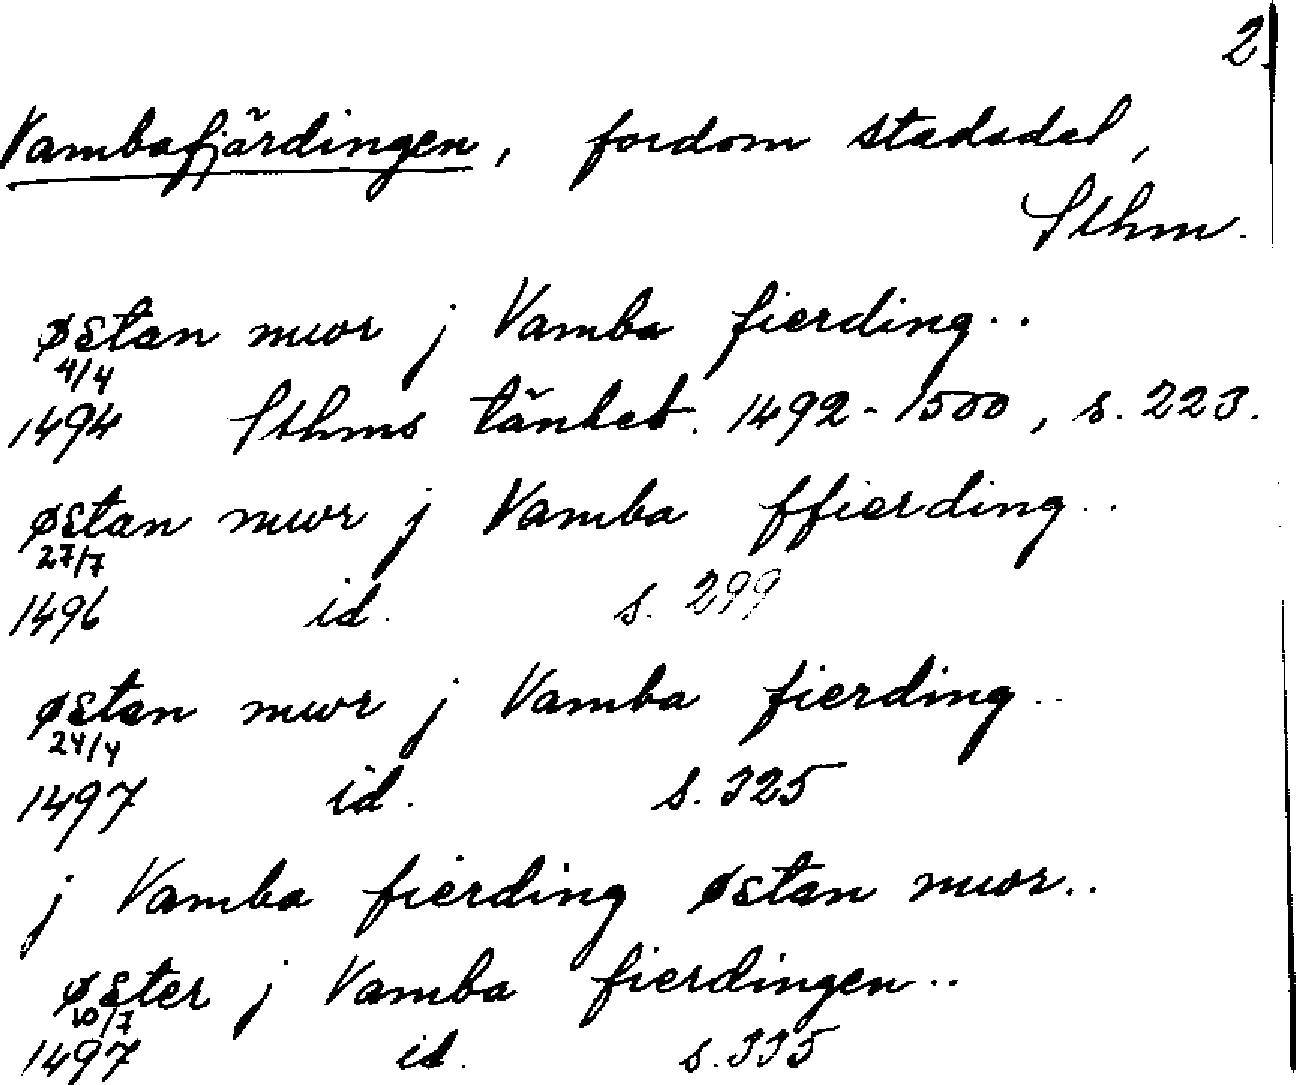 2.
Vambafjärdingen, fordom stadsdel,
Sthm.
østan mwr j Vamba fierding..
4/4
1494 Sthms tänkeb. 1492-1500, s. 223.
østan mwr j Vamba ffierding..
27/7
1496 id. s. 299
østan mwr j Vamba fierding..
24/4
1497 id. s. 325
j Vamba fierding østan mwr..
øster j Vamba fierdingen..
10/7
1497 id. s. 335